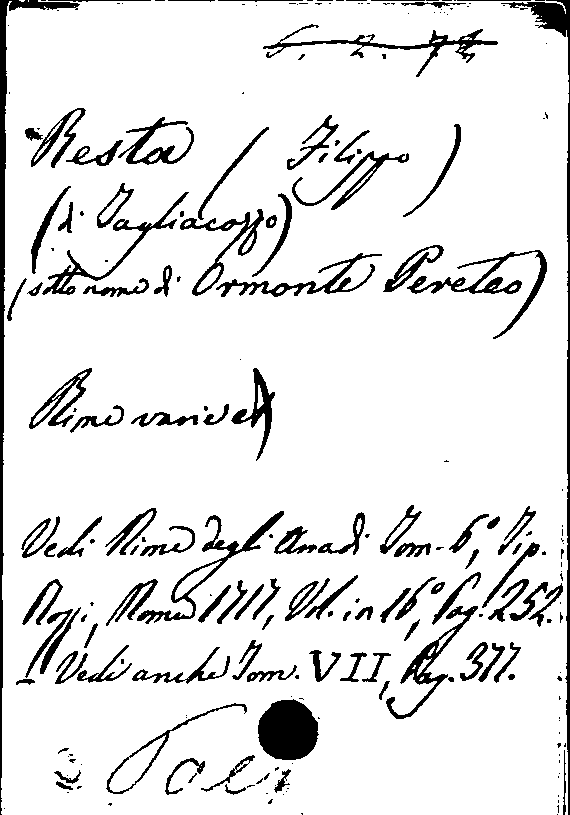 6. 2. 7
Resta (Filippo)
(di Tagliacozzo)
(sotto nome di Ormonte Pereteo)
Rime varie
Vedi Rime degli Arcadi Tom. 6º, Tip.
Rossi, Roma 1717, Vol. in 16º, Pag. 252.
Vedi anche Tom. VII, Pag. 377.